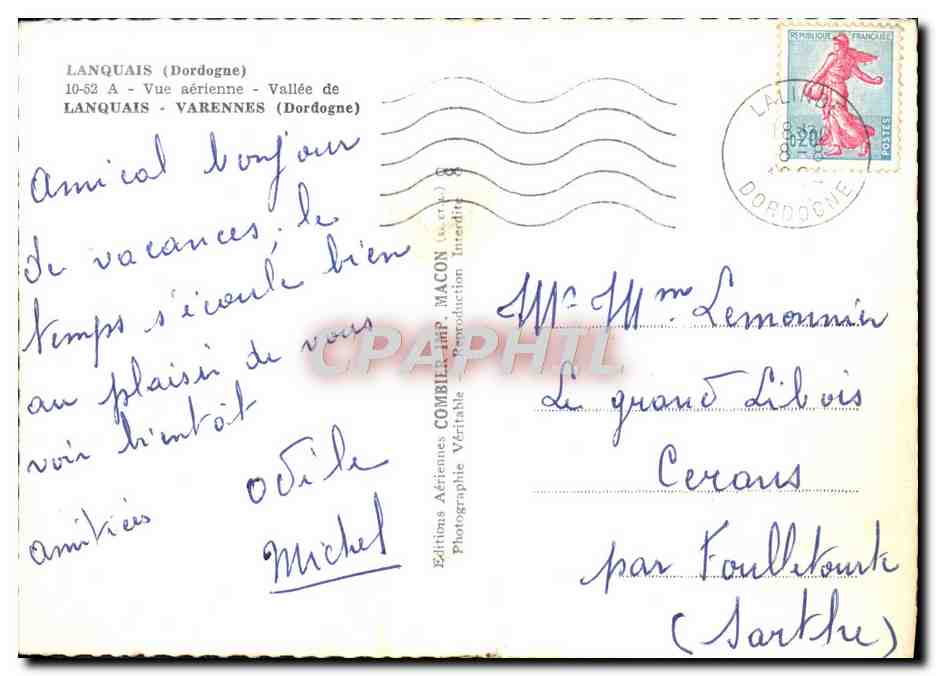 LANQUAIS (Dordogne)
10-52 A - Vue aérienne - Vallée de
LANQUAIS - VARENNES (Dordogne)
Amical bonjour
de vacances, le
temps s'écoule bien
au plaisir de vous
voir bientôt
amitiées
Odile
Michel
Editions Aériennes COMBIER IMP. MACON (S. et L.)
Photographie Véritable - Reproduction Interdite
CPAPHIL
REPUBLIQUE FRANÇAISE
0,20
POSTES
LALINDE
18 H
8 - 8
DORDOGNE
Mr Mme Lemonnier
Le grand Libois
Cerans
par Foulletourte
(Sarthe)